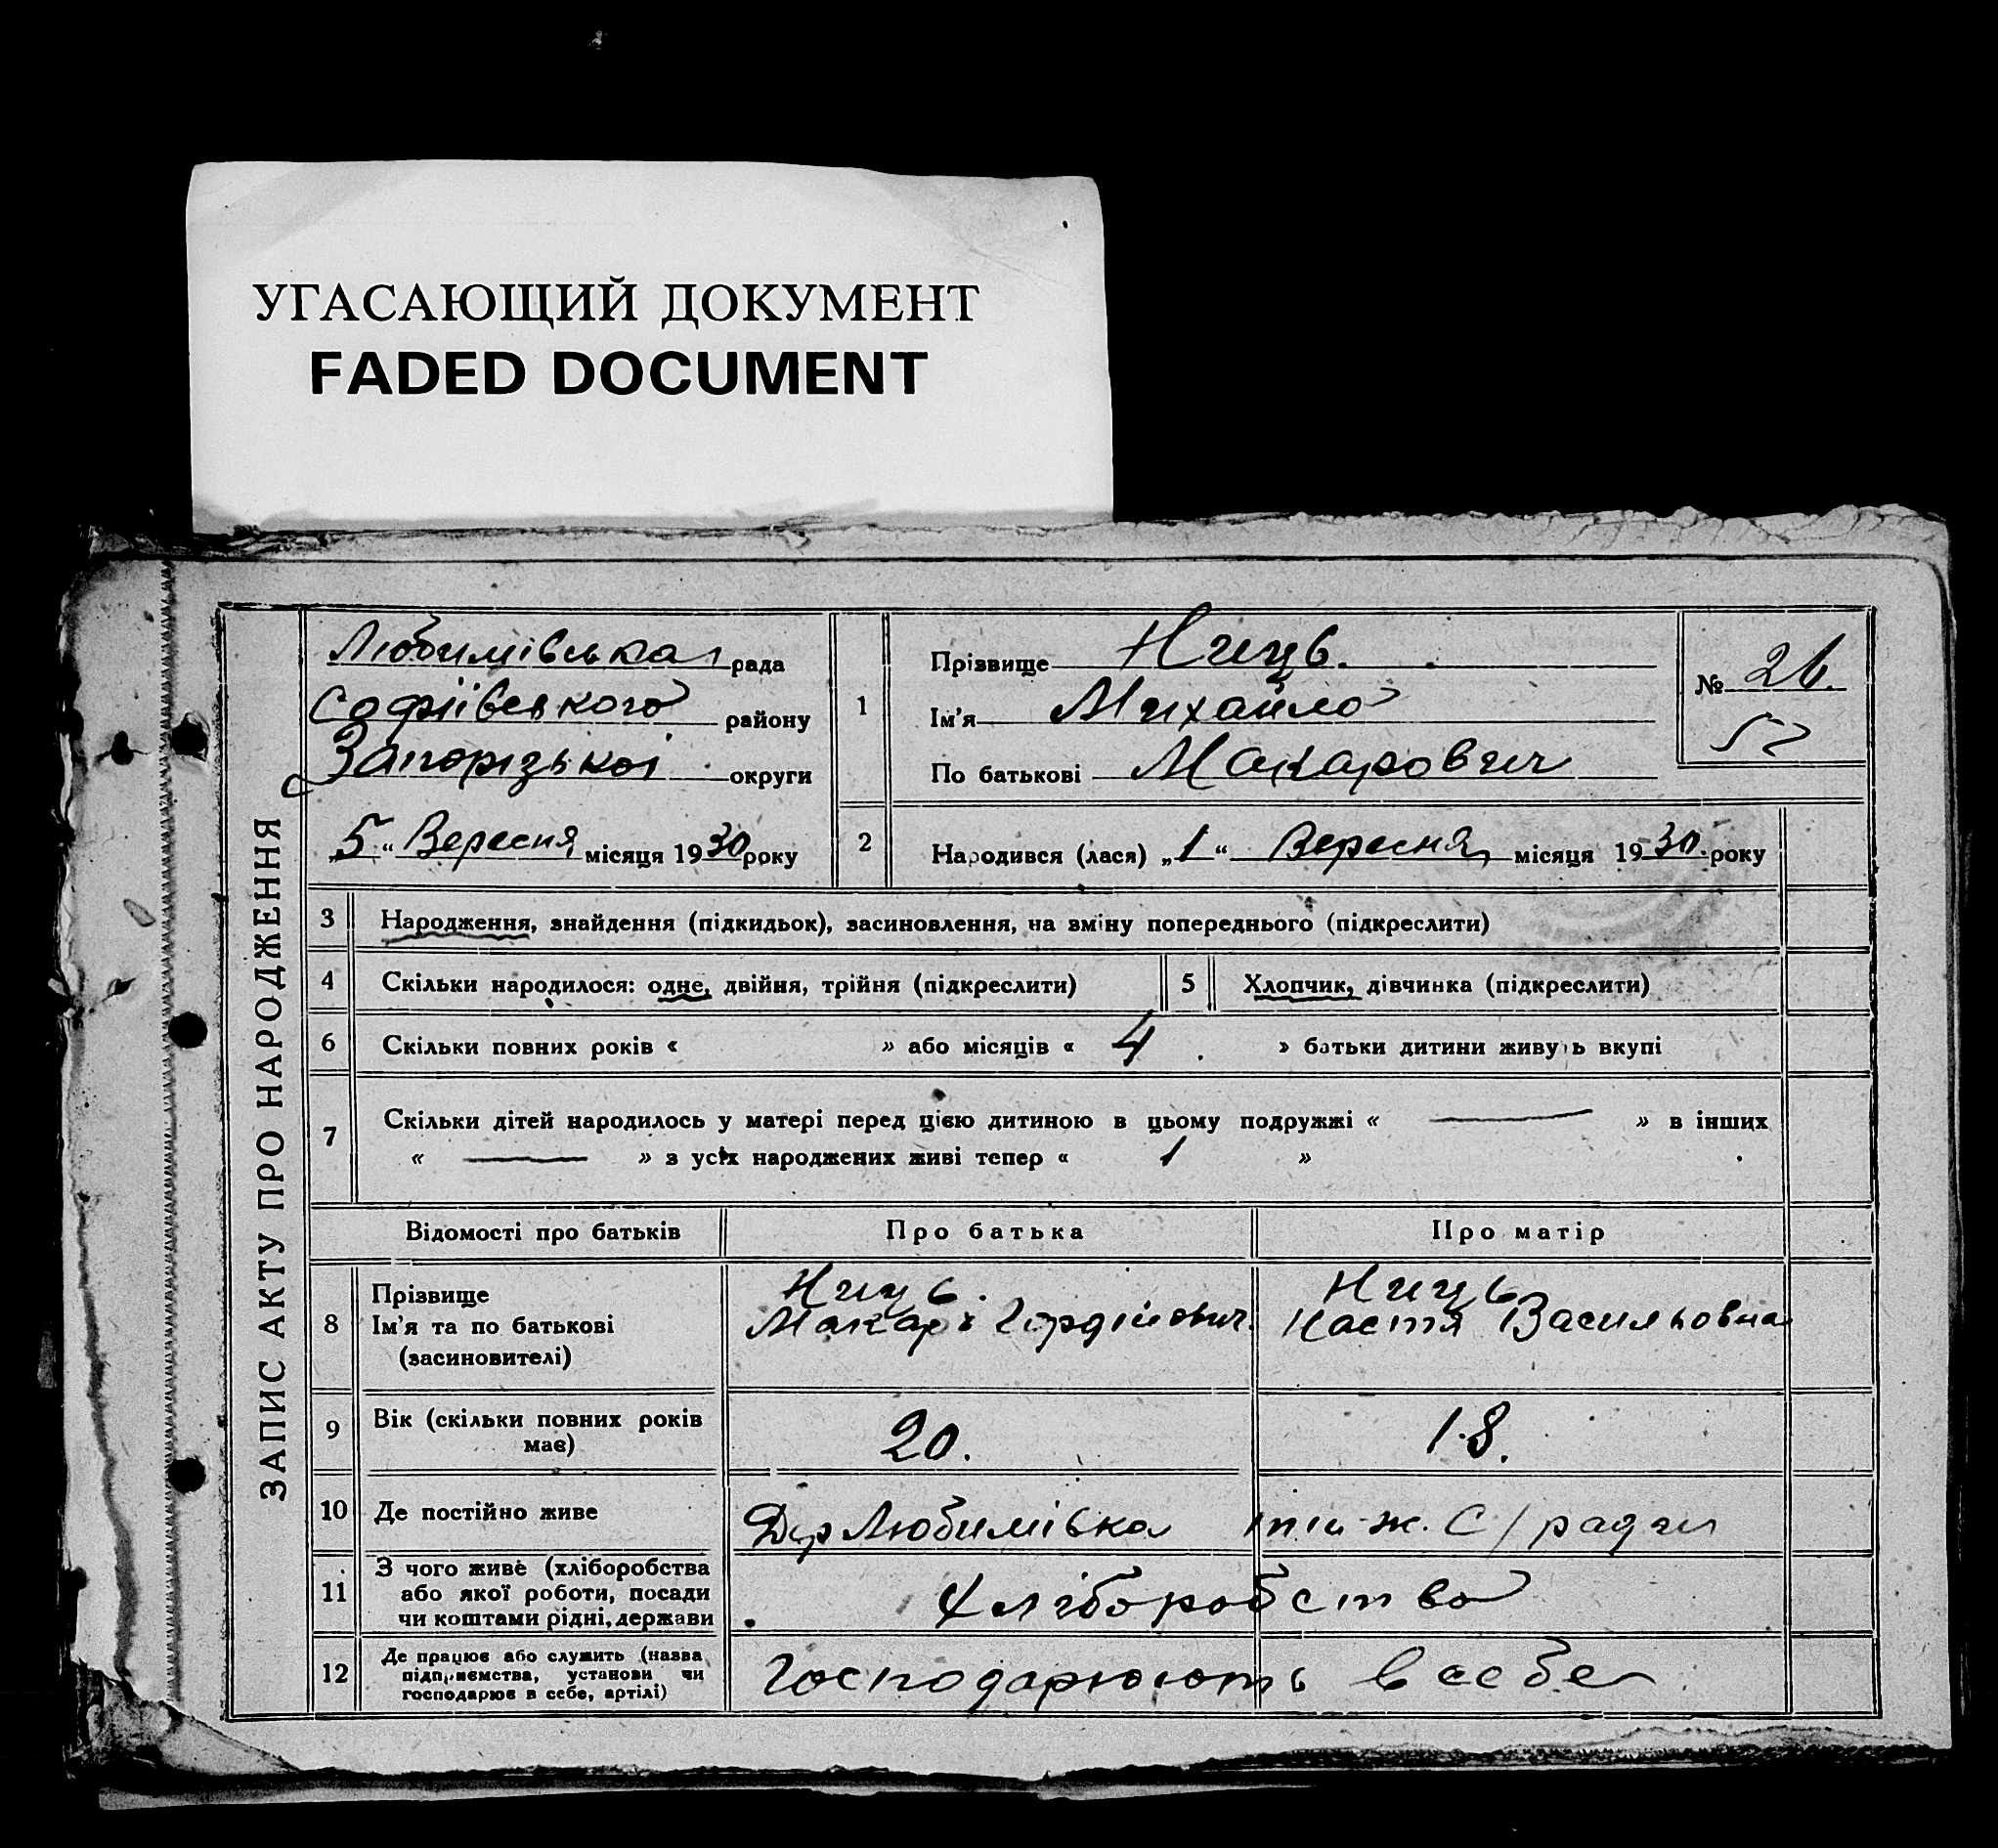 УГАСАЮЩИЙ ДОКУМЕНТ
FADED DOCUMENT
ЗАПИС АКТУ ПРО НАРОДЖЕННЯ
Любимівська рада
Софіївського району
Запорізької округи
5 “ Вересня місяця 1930 року
1
Прізвище Ниць.
Ім'я Михайло
По батькові Макарович
№ 26.
52
2 Народився (лася) „1“ Вересня місяця 1930 року
3 Народження, знайдення (підкидьок), засиновлення, на зміну попереднього (підкреслити)
4 Скільки народилося: одне, двійня, трійня (підкреслити) 5 Хлопчик, дівчинка (підкреслити)
6 Скільки повних років « » або місяців « 4 . » батьки дитини живуть вкупі
7 Скільки дітей народилось у матері перед цією дитиною в цьому подружжі « — » в інших
« — » з усіх народжених живі тепер « 1 »
Відомості про батьків Про батька Про матір
8 Прізвище Ниць. Ниць
Ім'я та по батькові Макар Гордійович Настя Васильовна
(засиновителі)
9 Вік (скільки повних років має) 20. 18.
10 Де постійно живе Дер Любимівка тій-ж. С/ради
11 З чого живе (хліборобства або якої роботи, посади чи коштами рідні, держави Хліборобство
12 Де працює або служить (назва підприємства, установи чи господарює в себе, артілі) Господарюють в себе